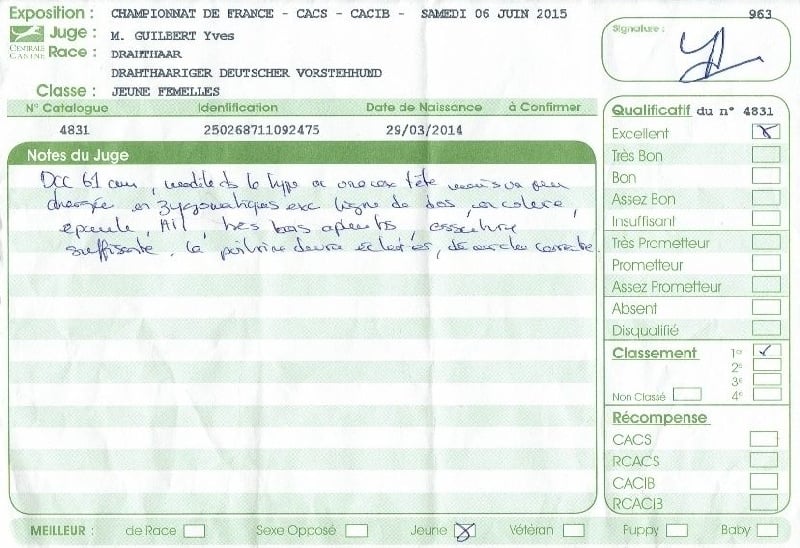 Exposition : CHAMPIONNAT DE FRANCE - CACS - CACIB - SAMEDI 06 JUIN 2015
963
CENTRALE CANINE
Juge : M. GUILBERT Yves
Race : DRAHTHAAR
DRAHTHAARIGER DEUTSCHER VORSTEHHUND
Classe : JEUNE FEMELLES
Signature :
N° Catalogue Identification Date de Naissance à Confirmer
4831 250268711092475 29/03/2014
Notes du Juge
DCC 61 cm, le type tête un peu
chargée en zygomatiques exc ligne de dos, encolure,
épaule, très bons aplombs, ossature
suffisante, la poitrine devra éclater, démarche correcte.
Qualificatif du n° 4831
Excellent
Très Bon
Bon
Assez Bon
Insuffisant
Très Prometteur
Prometteur
Assez Prometteur
Absent
Disqualifié
Classement 1er
2e
3e
Non Classé 4e
Récompense
CACS
RCACS
CACIB
RCACIB
MEILLEUR : de Race Sexe Opposé Jeune Vétéran Puppy Baby